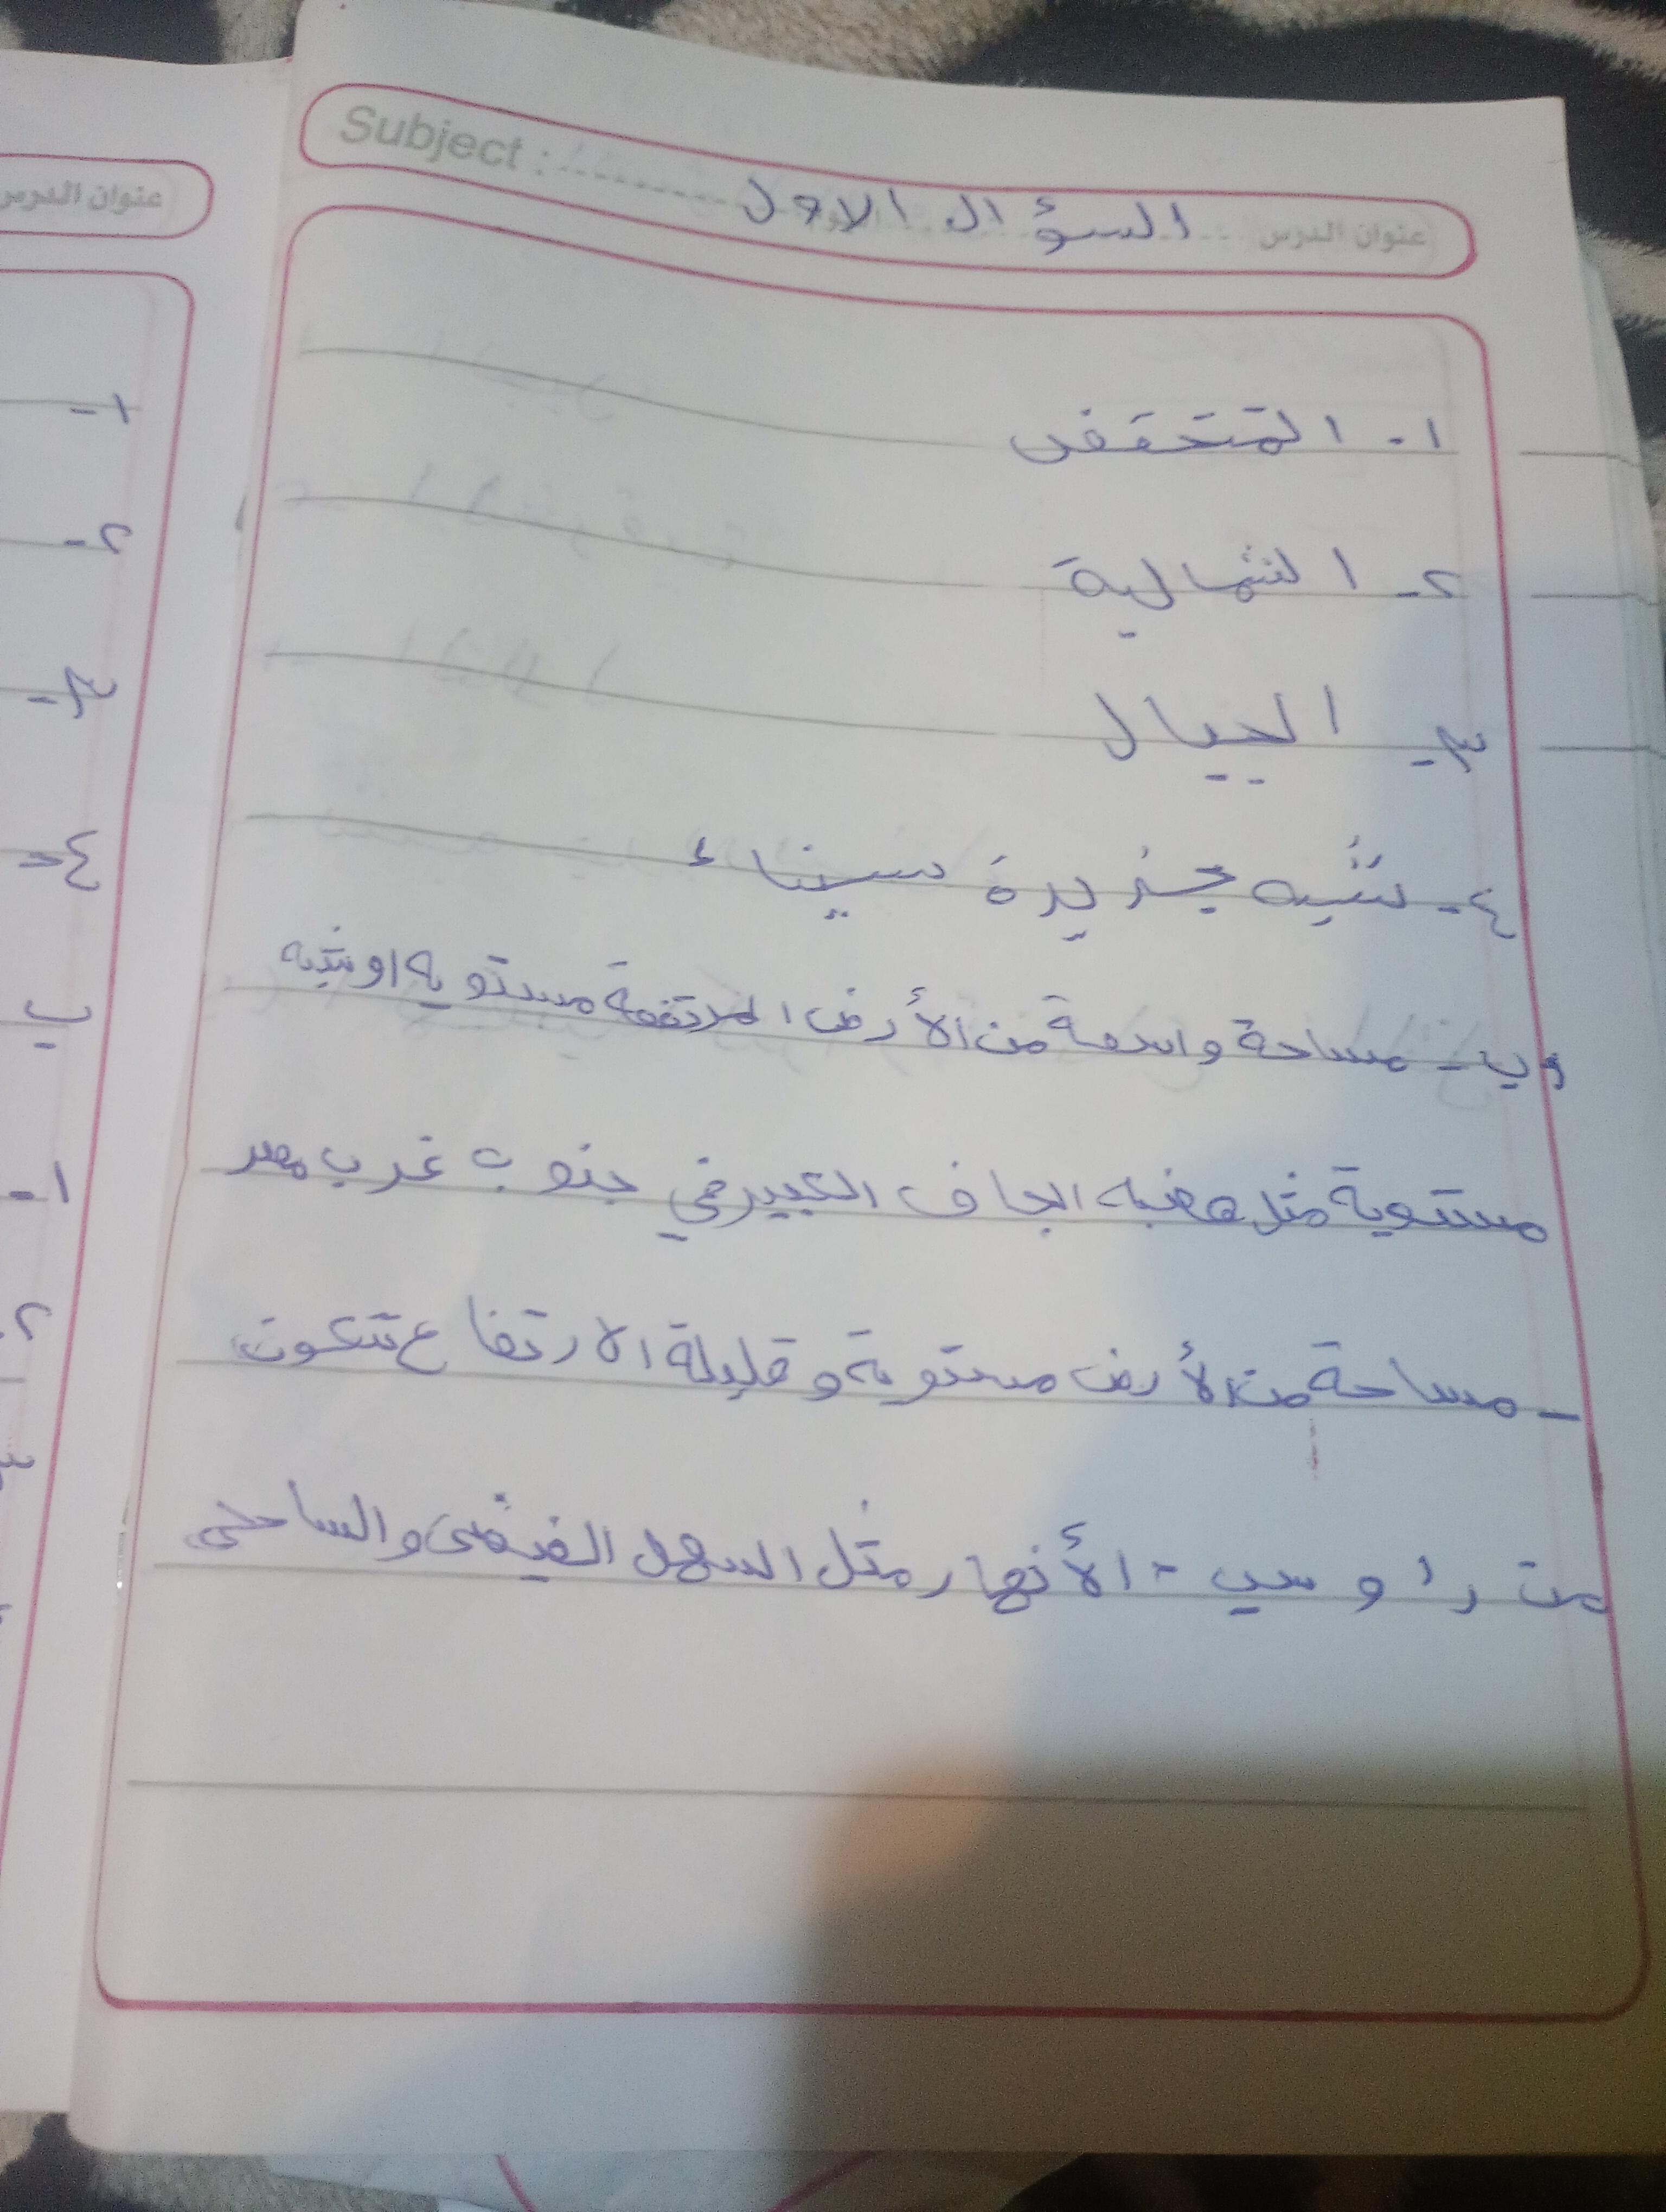 Subject :
عنوان الدرس السؤال الاول
١- المتخفض
٢- الشمالية
٣- الجبال
٤- شبه جزيرة سيناء
ب- مساحة واسعة من الأرض المرتفعة مستويه او شبه
مستوية مثل هضبه الجاف الكبير في جنوب غرب مصر
- مساحة من الأرض مستوية وقليلة الارتفاع تتكون
من رواسب الأنهار مثل السهل الفيضى والساحلى
عنوان الدرس
١-
٢-
٣-
٤-
ب
١-
٢-